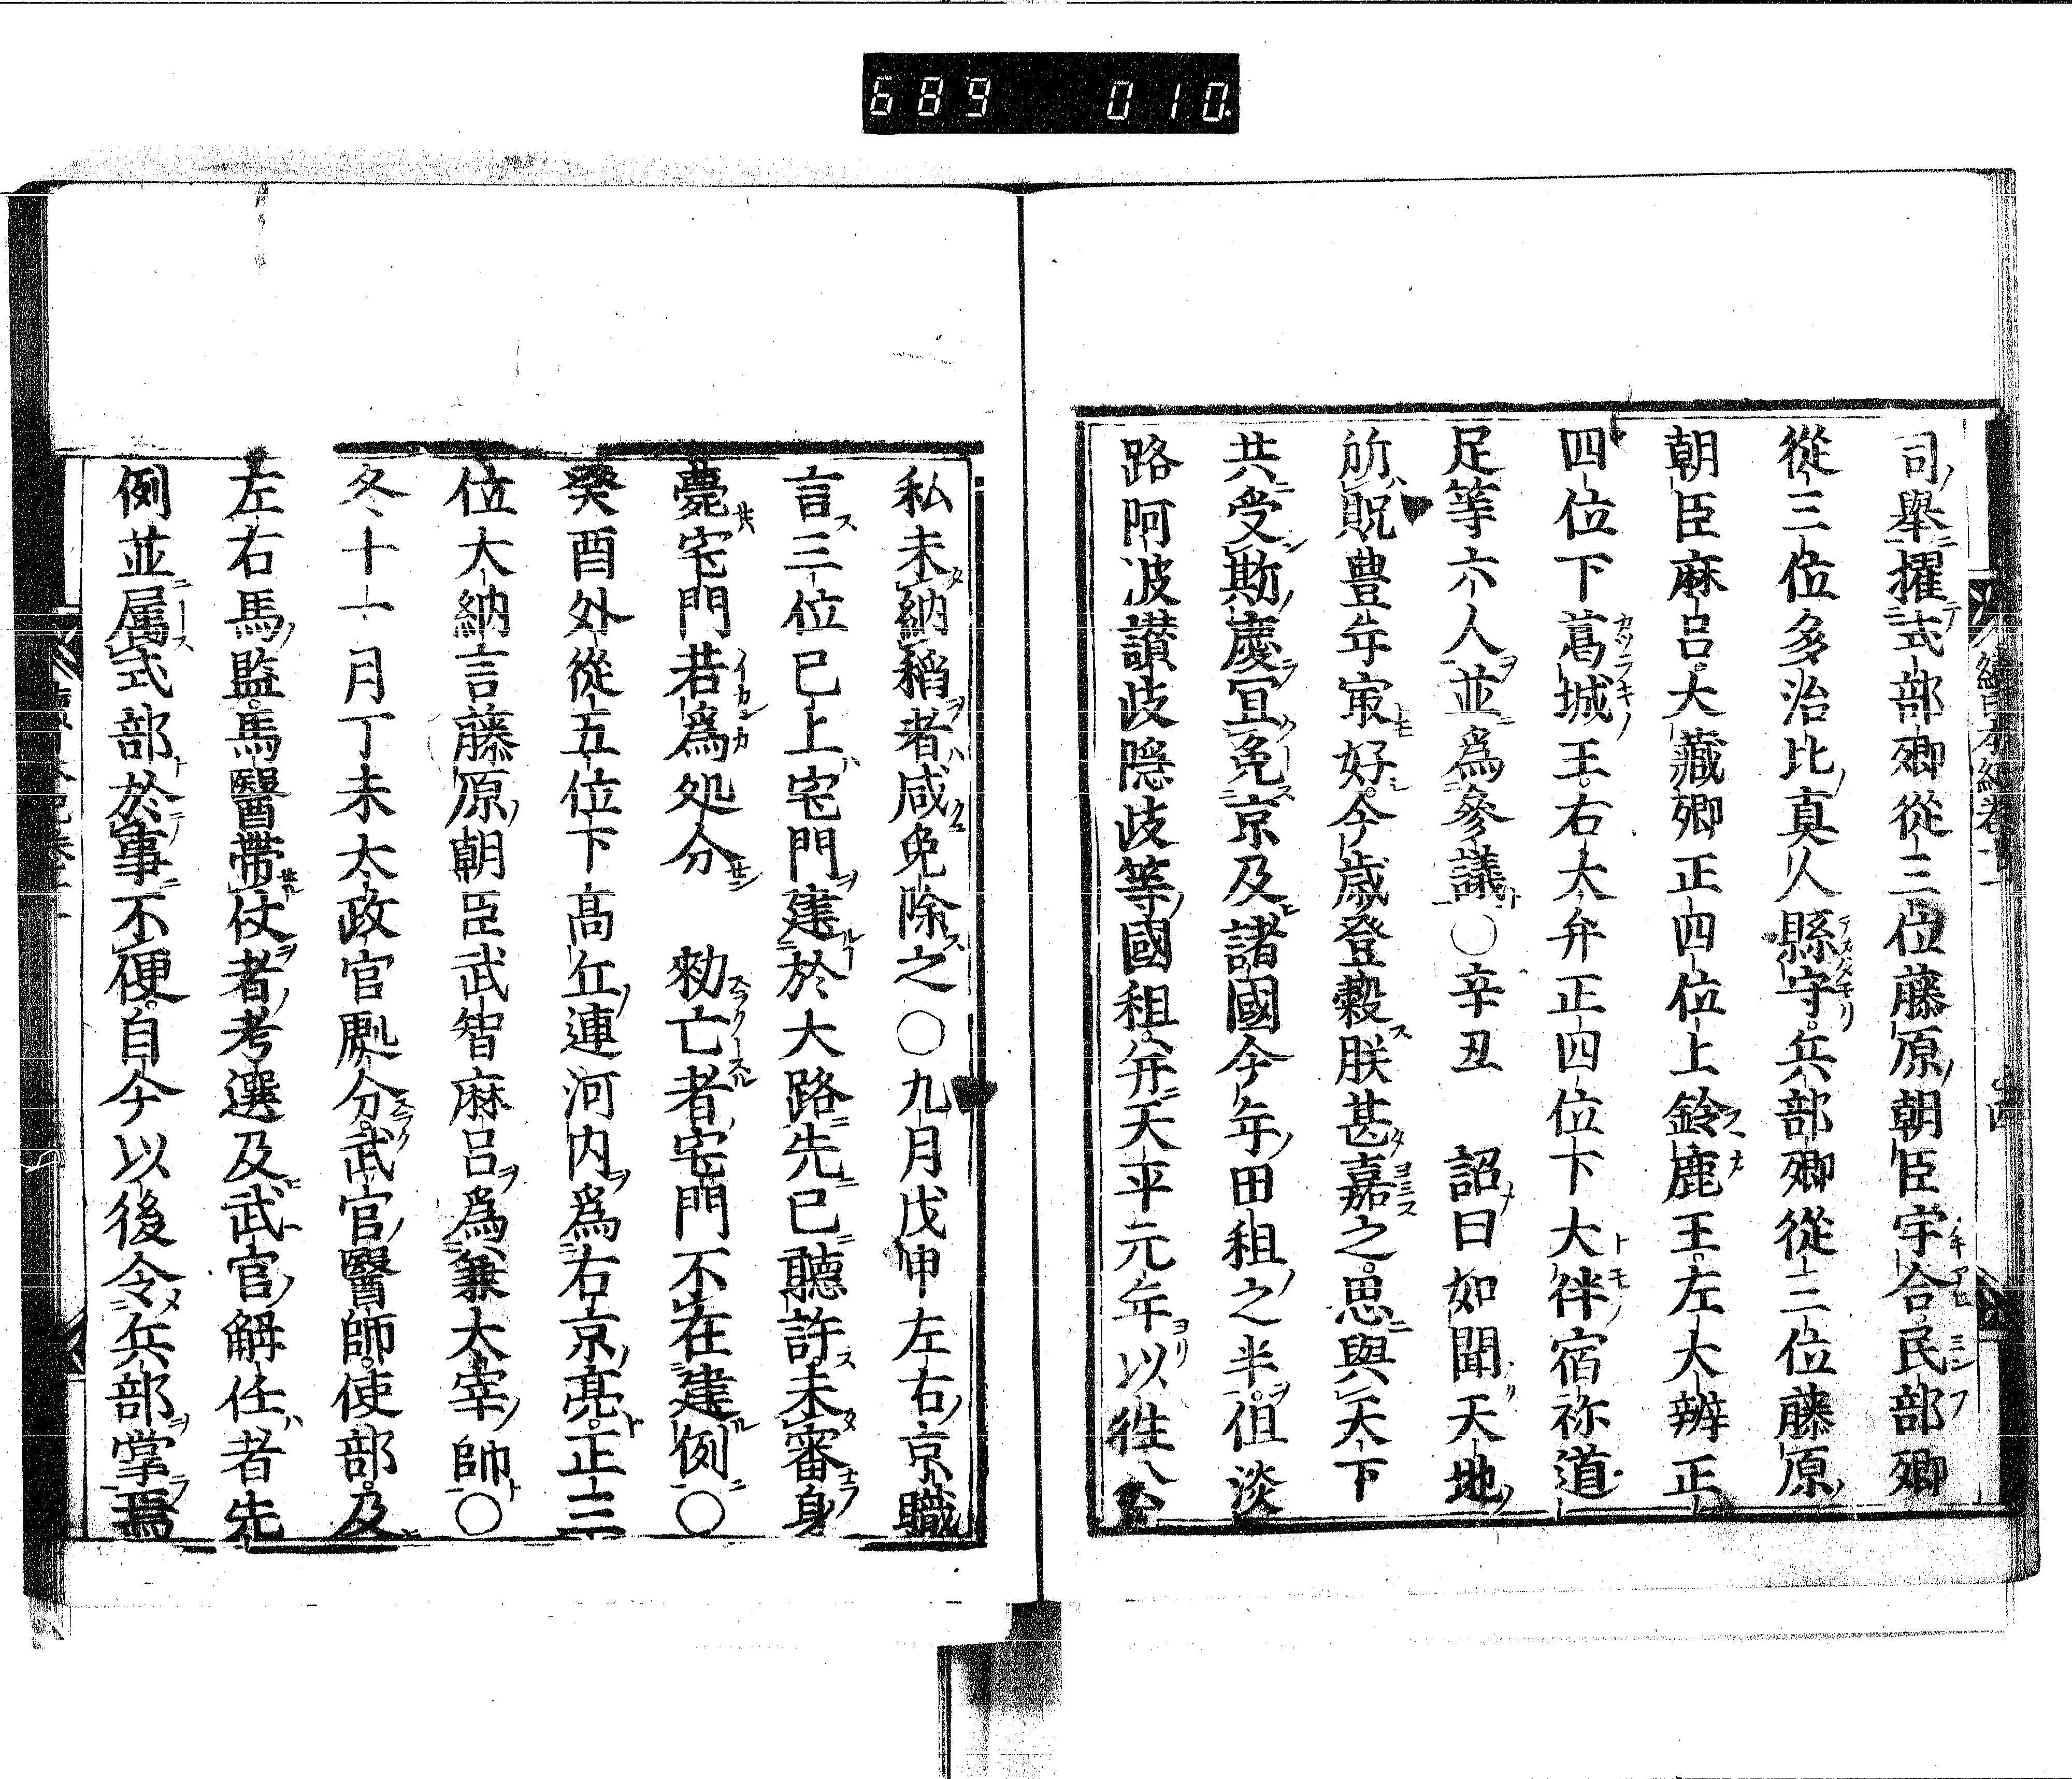 689 010
司舉擢式部卿從三位藤原朝臣宇合民部卿
從三位多治比真人縣守兵部卿從三位藤原
朝臣麻呂大藏卿正四位上鈴鹿王左大辨正
四位下葛城王右大弁正四位下大伴宿祢道
足等六人並爲參議○辛丑 詔曰如聞天地
所貺豊年㝡好今歳登穀朕甚嘉之思與天下
共受斯慶冝免京及諸國今年田租之半但淡
路阿波讃岐隠岐等國租并天平元年以往公
私未納稻者咸免除之○九月戊申左右京職
言三位已上宅門建於大路先已聽許未審身
薨宅門若爲処分 勅亡者宅門不在建例○
癸酉外從五位下高丘連河内爲右京亮正三
位大納言藤原朝臣武智麻呂爲兼大宰帥○
冬十一月丁未太政官處分武官醫師使部及
左右馬監馬醫帶仗者考選及武官解任者先
例並属式部於事不便自今以後令兵部掌焉